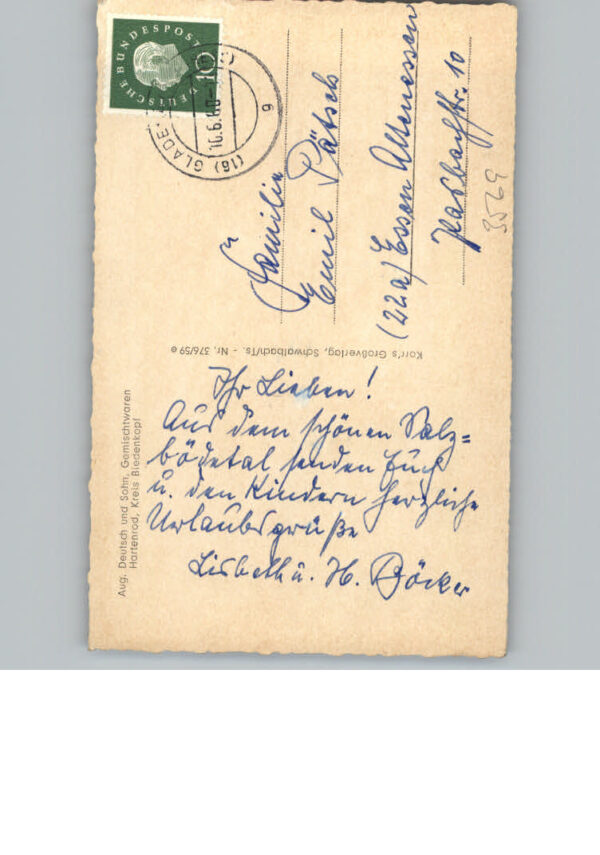 Ihr Lieben!
Aus dem schönen Salz=
bödetal senden Euch
u. den Kindern herzliche
Urlaubsgrüße
Lisbeth u. H. Böcker
Familie
Emil Pätsch
(22a) Essen Altenessen
Hasbachstr. 10
3569
DEUTSCHE BUNDESPOST
10
(16) GLADE
16.6.60
g
Korr's Großverlag, Schwalbach/Ts. - Nr. 376/59 e
Aug. Deutsch und Sohn, Gemischtwaren
Hartenrod, Kreis Biedenkopf